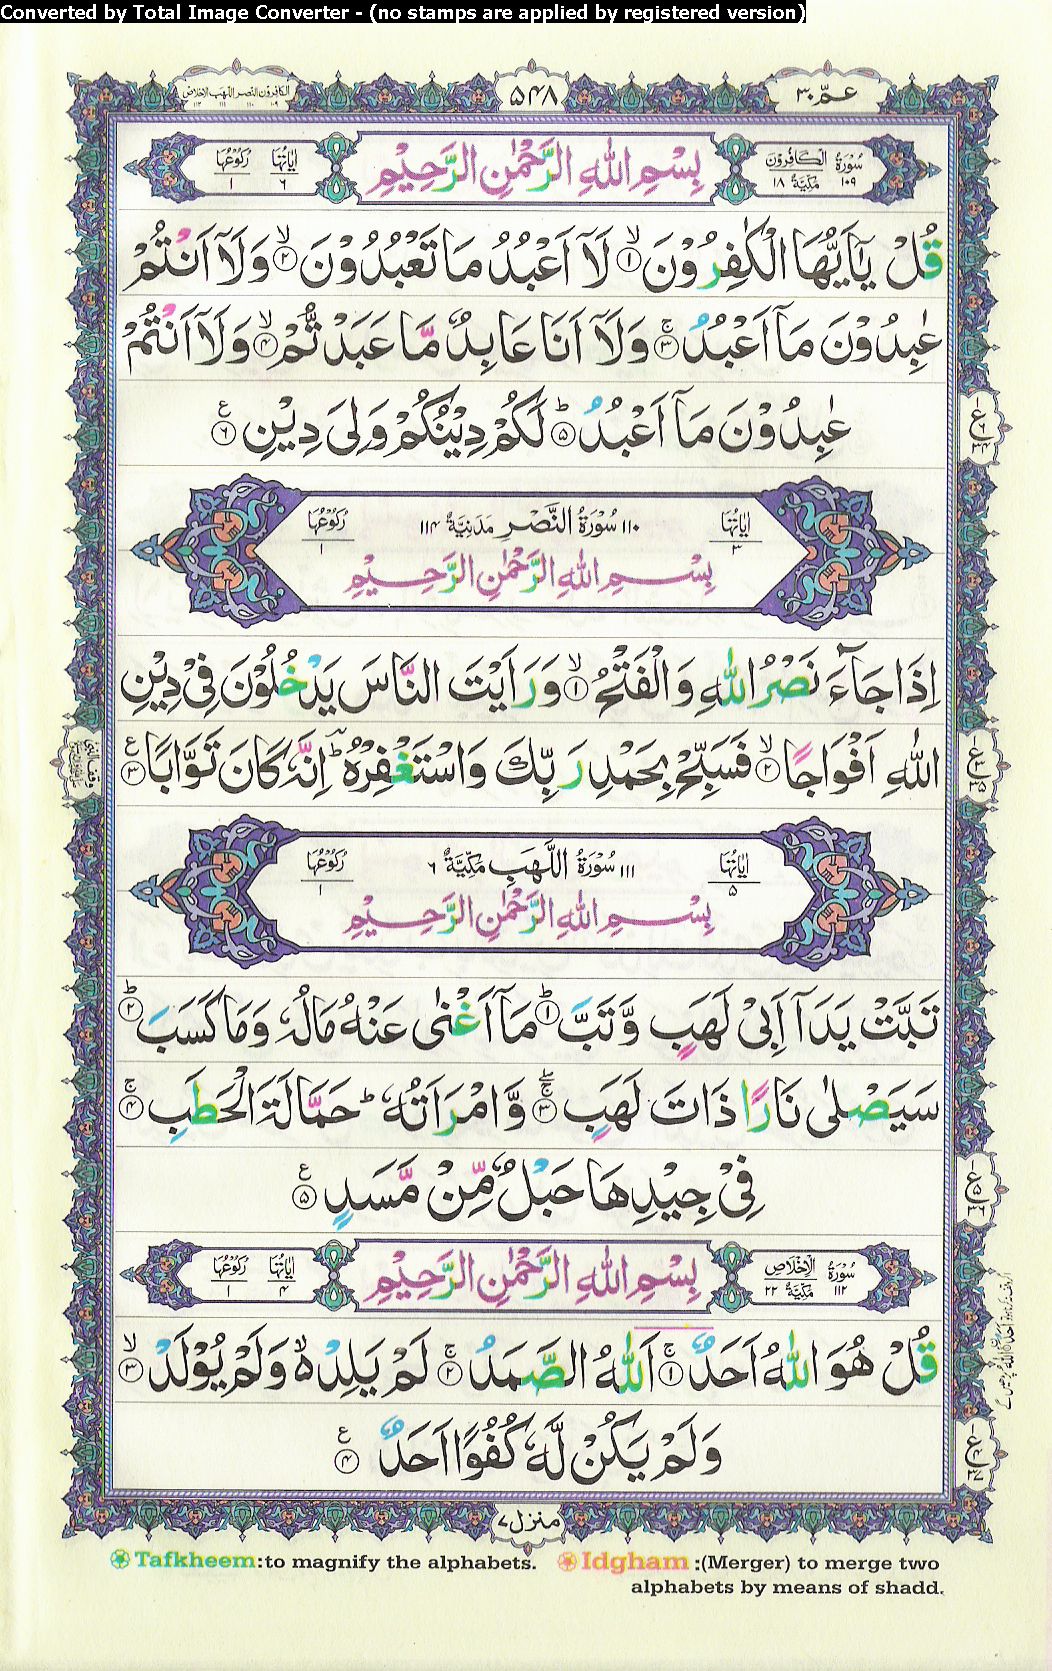 Converted by Total Image Converter - (no stamps are applied by registered version)
عمّ ٣٠
٥٤٨
الكافرون النصر اللهب الاخلاص
سُوْرَةُ الْكَافِرُوْنَ
١٠٩ مَكِّيَّةٌ ١٨
بِسْمِ اللهِ الرَّحْمٰنِ الرَّحِيْمِ
اٰيَاتُهَا ٦
رُكُوْعُهَا ١
قُلْ يٰۤاَيُّهَا الْكٰفِرُوْنَ ۙ﴿١﴾ لَاۤ اَعْبُدُ مَا تَعْبُدُوْنَ ۙ﴿٢﴾ وَلَاۤ اَنْتُمْ
عٰبِدُوْنَ مَاۤ اَعْبُدُ ۚ﴿٣﴾ وَلَاۤ اَنَا عَابِدٌ مَّا عَبَدْتُّمْ ۙ﴿٤﴾ وَلَاۤ اَنْتُمْ
عٰبِدُوْنَ مَاۤ اَعْبُدُ ؕ﴿٥﴾ لَكُمْ دِيْنُكُمْ وَلِىَ دِيْنِ ﴿٦﴾ ع
ع ٦ ٣٤
١١٠ سُوْرَةُ النَّصْرِ مَدَنِيَّةٌ ١١٤
اٰيَاتُهَا ٣
رُكُوْعُهَا ١
بِسْمِ اللهِ الرَّحْمٰنِ الرَّحِيْمِ
اِذَا جَآءَ نَصْرُ اللّٰهِ وَالْفَتْحُ ۙ﴿١﴾ وَرَاَيْتَ النَّاسَ يَدْخُلُوْنَ فِىْ دِيْنِ
اللّٰهِ اَفْوَاجًا ۙ﴿٢﴾ فَسَبِّحْ بِحَمْدِ رَبِّكَ وَاسْتَغْفِرْهُ ؕ اِنَّهٗ كَانَ تَوَّابًا ﴿٣﴾ ع
ع ٣ ٣٥
١١١ سُوْرَةُ اللَّهَبِ مَكِّيَّةٌ ٦
اٰيَاتُهَا ٥
رُكُوْعُهَا ١
بِسْمِ اللهِ الرَّحْمٰنِ الرَّحِيْمِ
تَبَّتْ يَدَاۤ اَبِىْ لَهَبٍ وَّتَبَّ ؕ﴿١﴾ مَاۤ اَغْنٰى عَنْهُ مَالُهٗ وَمَا كَسَبَ ؕ﴿٢﴾
سَيَصْلٰى نَارًا ذَاتَ لَهَبٍ ۚۖ﴿٣﴾ وَّامْرَاَتُهٗ ؕ حَمَّالَةَ الْحَطَبِ ۚ﴿٤﴾
فِىْ جِيْدِهَا حَبْلٌ مِّنْ مَّسَدٍ ﴿٥﴾ ع
ع ٥ ٣٦
سُوْرَةُ الْاِخْلَاصِ
١١٢ مَكِّيَّةٌ ٢٢
بِسْمِ اللهِ الرَّحْمٰنِ الرَّحِيْمِ
اٰيَاتُهَا ٤
رُكُوْعُهَا ١
قُلْ هُوَ اللّٰهُ اَحَدٌ ۚ﴿١﴾ اَللّٰهُ الصَّمَدُ ۚ﴿٢﴾ لَمْ يَلِدْ ۙ وَلَمْ يُوْلَدْ ۙ﴿٣﴾
وَلَمْ يَكُنْ لَّهٗ كُفُوًا اَحَدٌ ﴿٤﴾ ع
ع ٤ ٣٧
منزل ٧
Tafkheem :to magnify the alphabets.
Idgham :(Merger) to merge two
alphabets by means of shadd.